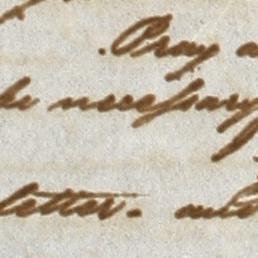 Pray a
be necessary
letter. and